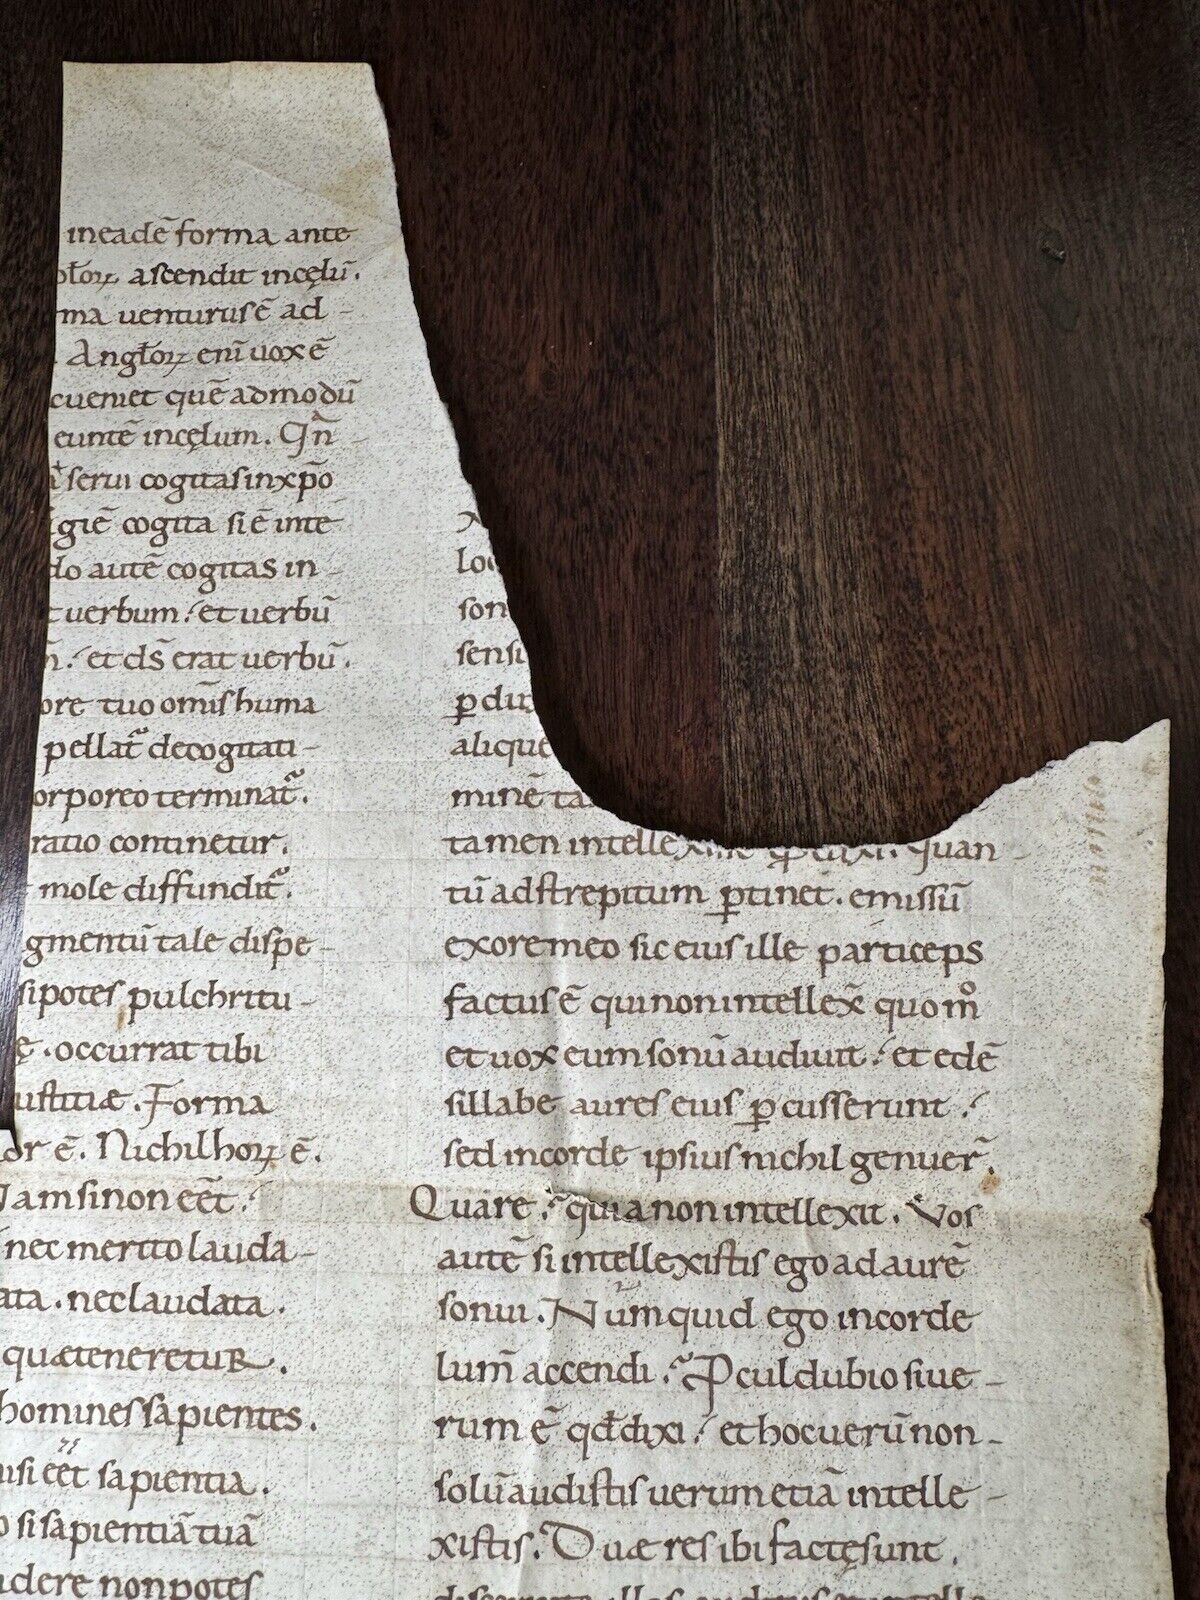 ineadē forma ante
ascendit incęlū.
ma venturus ē ad -
Angłoꝝ eni̅ uox ē
ueniet quē admodū
euntē incęlum. Qn̄ -
serui cogitas inxp̄o
giē cogita si ē inte
do autē cogitas in -
uerbum : et uerbū
: et ds̄ erat uerbū.
ore tuo om̄is huma
pellat᷑ decogitati -
orporeo terminat᷑.
ratio continetur.
mole diffundit᷑.
gmentū tale dispe -
si potes pulchritu -
ę. occurrat tibi
ustitiæ. Forma
or ē. Nichil hoꝝ ē.
Jam si non eēt :
nec merito lauda -
ata. nec laudata.
quæ teneretur.
homines sapientes.
usi eēt sapientia.
si sapientiā tuā
idere non potes
X
loc
son
sensi
ꝑ du
aliquē
minē ta
tamen intelle Quan -
tū ad strepitum ꝑtinet. emissū
ex ore meo sic eius ille particeps
factus ē qui non intellex̄ quom̊
et uox eum sonū audiuit : et edē
sillabe aures eius ꝑcusserunt :
sed in corde ipsius nichil genuer̄.
Quare : quia non intellexit. Vos
autē si intellexistis ego ad aurē
sonui. Nūmquid ego in corde
lum̄ accendi : Pculdubio si ue -
rum ē qđ dixi : et hoc uerū non -
solū audistis uerum etiā intelle -
xistis. Duæ res ibi factę sunt.